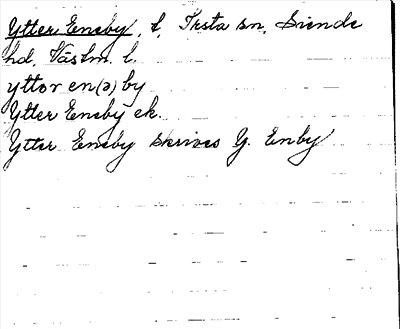 Ytter Eneby, t, Irsta sn, Siende
hd, Västm. l.
ytter en(ə)by
Ytter Eneby ek.
Ytter Eneby skrives Y. Enby